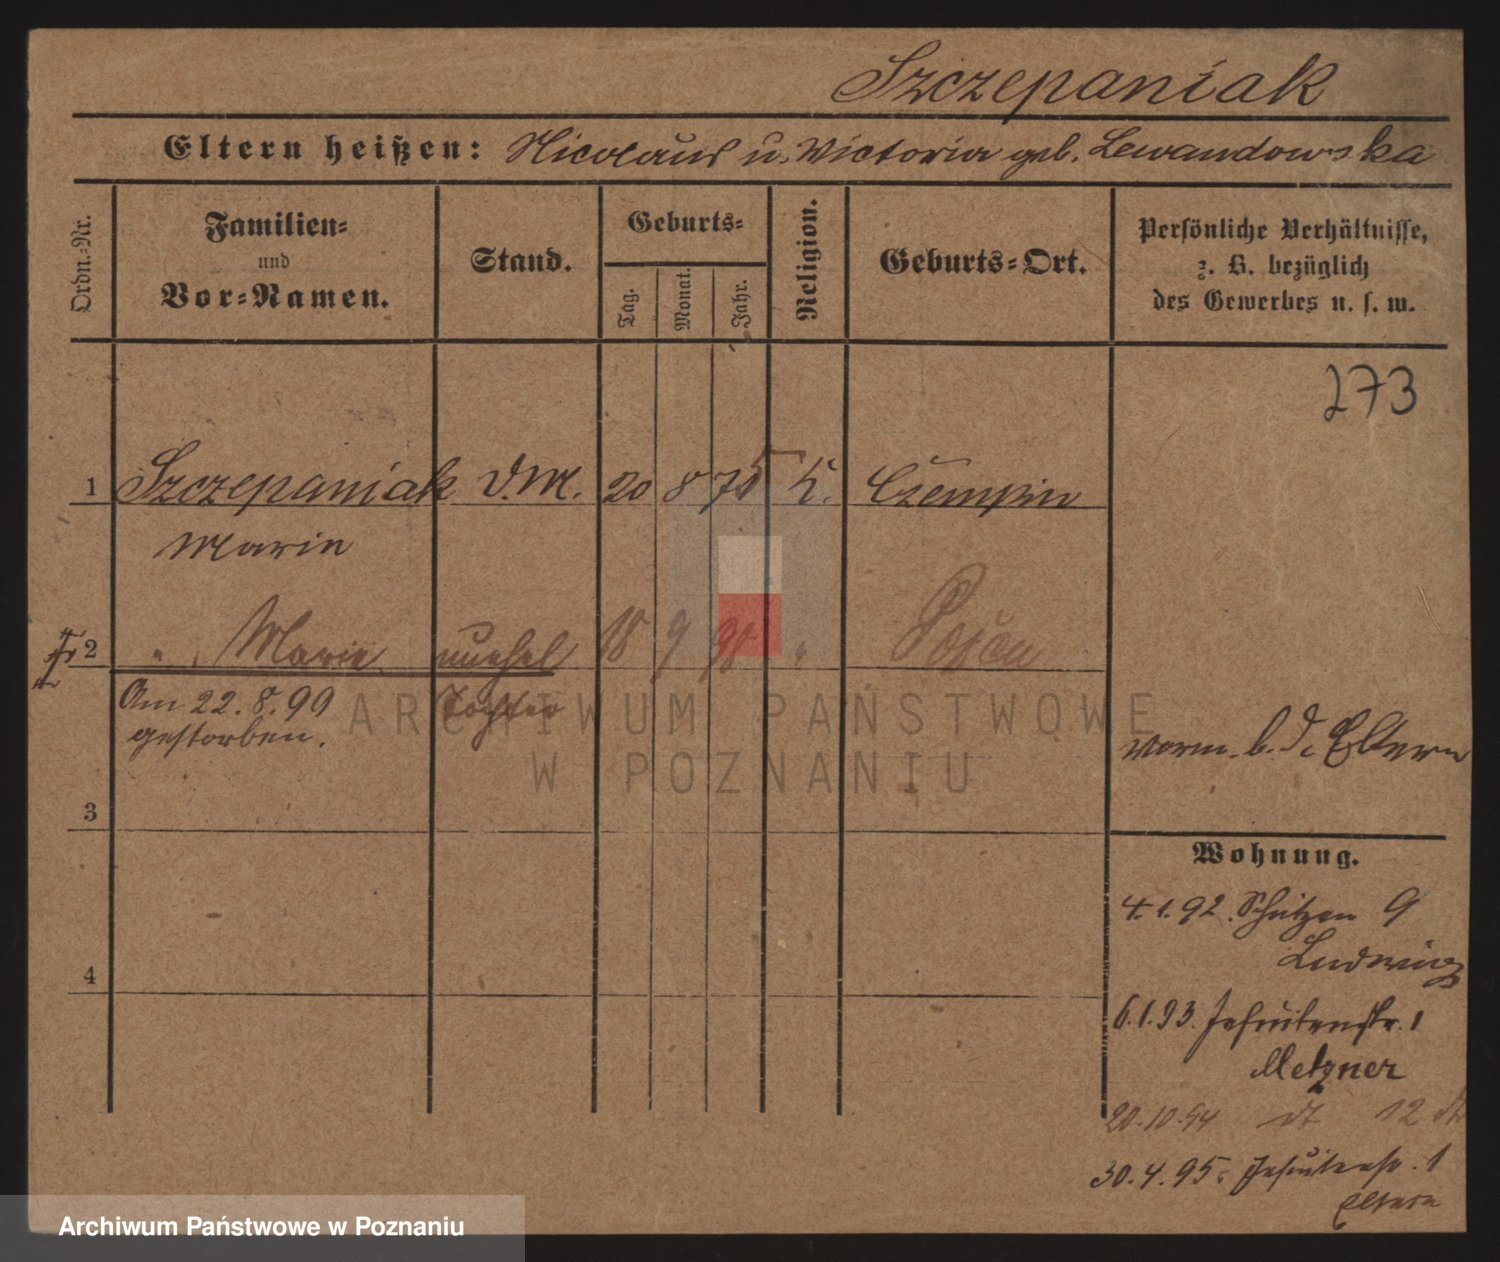 Szczepaniak
Eltern heißen: Nicolaus u. Victoria geb. Lewandowska
Ordn.-Nr.
Familien- und Vor-Namen.
Stand.
Geburts-
Tag.
Monat.
Jahr.
Religion.
Geburts-Ort.
Persönliche Verhältnisse,
z. B. bezüglich
des Gewerbes u. s. w.
273
1 Szczepaniak D.M. 20 8 75 k. Czempin
Marie
2 " Marie unehel 18 9 98 " Posen
Am 22.8.99 Tochter
gestorben.
vorm. b. d. Eltern
3
4
Wohnung.
4.1.92. Schützen 9
Ludwig
6.1.93. Jesuitenstr. 1
Metzner
20.10.94 dt 12
30.4.95. Jesuitenstr. 1
Eltern
ARCHIWUM PAŃSTWOWE
W POZNANIU
Archiwum Państwowe w Poznaniu